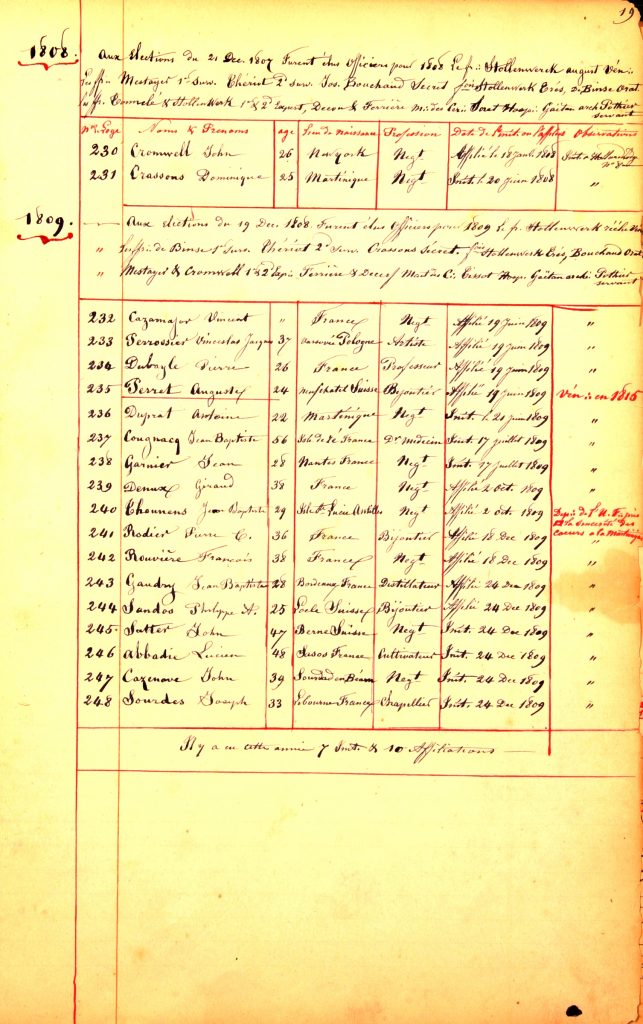 19
1808.
Aux Elections du 21 Dec. 1807 Furent élus Officiers pour 1808 Le f∴ Stollenwerck august Vén∴
Mestayer 1er Surv. Chériot 2d Surv. Jos. Bouchaud Secret Stollenwerk Trés, De Binse Orat
Cromelé & Stollenwerk 1er & 2d Expert, Decou & Ferrière
servant
Nos Loge Noms & Prénoms age Lieu de Naissance Profession Date de l'Init. ou l'affiliat Observations
230 Cromwell John 26 Newyork Negt Affilié le 18 Janv. 1808
231 Crassons Dominique 25 Martinique Negt Init. le 20 Juin 1808 "
1809.
Aux elections du 19 Dec. 1808. Furent élus Officiers pour 1809 Le fr. Stollenwerk
" de Binse 1er Surv. Chériot 2d Surv. Crassons Secret. Stollenwerk Trés, Bouchaud Orat
" Mestayer & Cromwell 1er & 2d Exp∴ Ferrière & Decou
servant
232 Cazamajor Vincent " France Negt Affilié 19 Juin 1809 "
233 Ferroessier Vinceslas Jacques 37 Varsovie Pologne Artiste Affilié 19 Juin 1809 "
234 Dubayle Pierre 26 France Professeur Affilié 19 Juin 1809 "
235 Perret Auguste 24 Neufchatel Suisse Bijoutier Affilié 19 Juin 1809 Vén∴ en 1815
236 Duprat Antoine 22 Martinique Negt Init. le 21 Juin 1809 "
237 Cougnacq Jean Baptiste 56 Isle de Ré France Dr Médecin Init. 17 Juillet 1809 "
238 Garnier Jean 28 Nantes France Negt Init. 17 Juillet 1809 "
239 Denux Giraud 38 France Negt Affilié 2 Oct. 1809 "
240 Thounens Jean Baptiste 29 Ste Lucie Antilles Negt Affilié 2 Oct. 1809 Dep∴ de
la Sincerité des
coeurs à la Martinique
241 Rodier Pierre C. 36 France Bijoutier Affilié 18 Dec 1809 "
242 Rouvière Francois 38 France Negt Affilié 18 Dec 1809 "
243 Gaudry Jean Baptiste 28 Bordeaux France Distillateur Affilié 24 Dec 1809 "
244 Sandos Philippe A. 25 Locle Suisse Bijoutier Affilié 24 Dec 1809 "
245. Sutter John 47 Berne Suisse Negt Init. 24 Dec 1809 "
246 Abbadie Lucien 48 France Cultivateur Init. 24 Dec 1809 "
247 Cazenove John 39 Negt Init. 24 Dec 1809 "
248 Sourdes Joseph 33 Libourne France Chapellier Init. 24 Dec 1809 "
Il y a eu cette année 7 Init. & 10 Affiliations